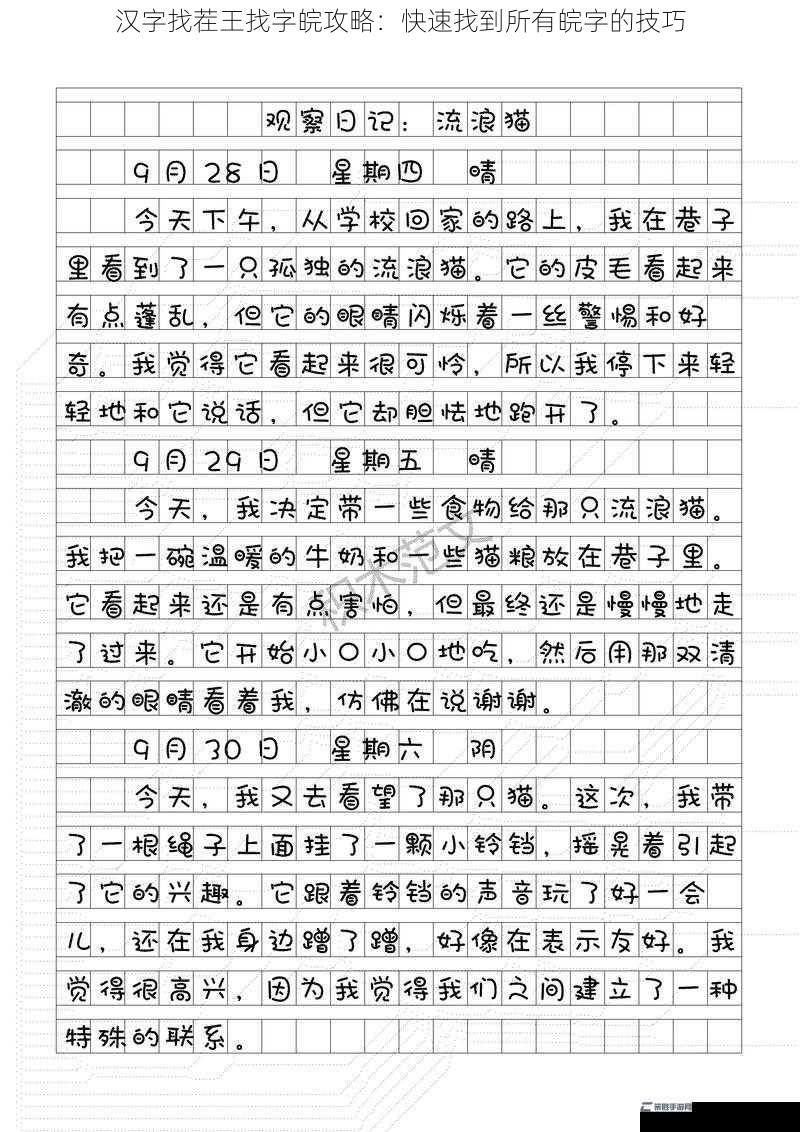 汉字找茬王找字皖攻略：快速找到所有皖字的技巧
观察日记：流浪猫
9月28日 星期四 晴
今天下午，从学校回家的路上，我在巷子
里看到了一只孤独的流浪猫。它的皮毛看起来
有点蓬乱，但它的眼睛闪烁着一丝警惕和好
奇。我觉得它看起来很可怜，所以我停下来轻
轻地和它说话，但它却胆怯地跑开了。
9月29日 星期五 晴
今天，我决定带一些食物给那只流浪猫。
我把一碗温暖的牛奶和一些猫粮放在巷子里。
它看起来还是有点害怕，但最终还是慢慢地走
了过来。它开始小口小口地吃，然后用那双清
澈的眼睛看着我，仿佛在说谢谢。
9月30日 星期六 阴
今天，我又去看望了那只猫。这次，我带
了一根绳子上面挂了一颗小铃铛，摇晃着引起
了它的兴趣。它跟着铃铛的声音玩了好一会
儿，还在我身边蹭了蹭，好像在表示友好。我
觉得很高兴，因为我觉得我们之间建立了一种
特殊的联系。
积木范文
莱胜手游网